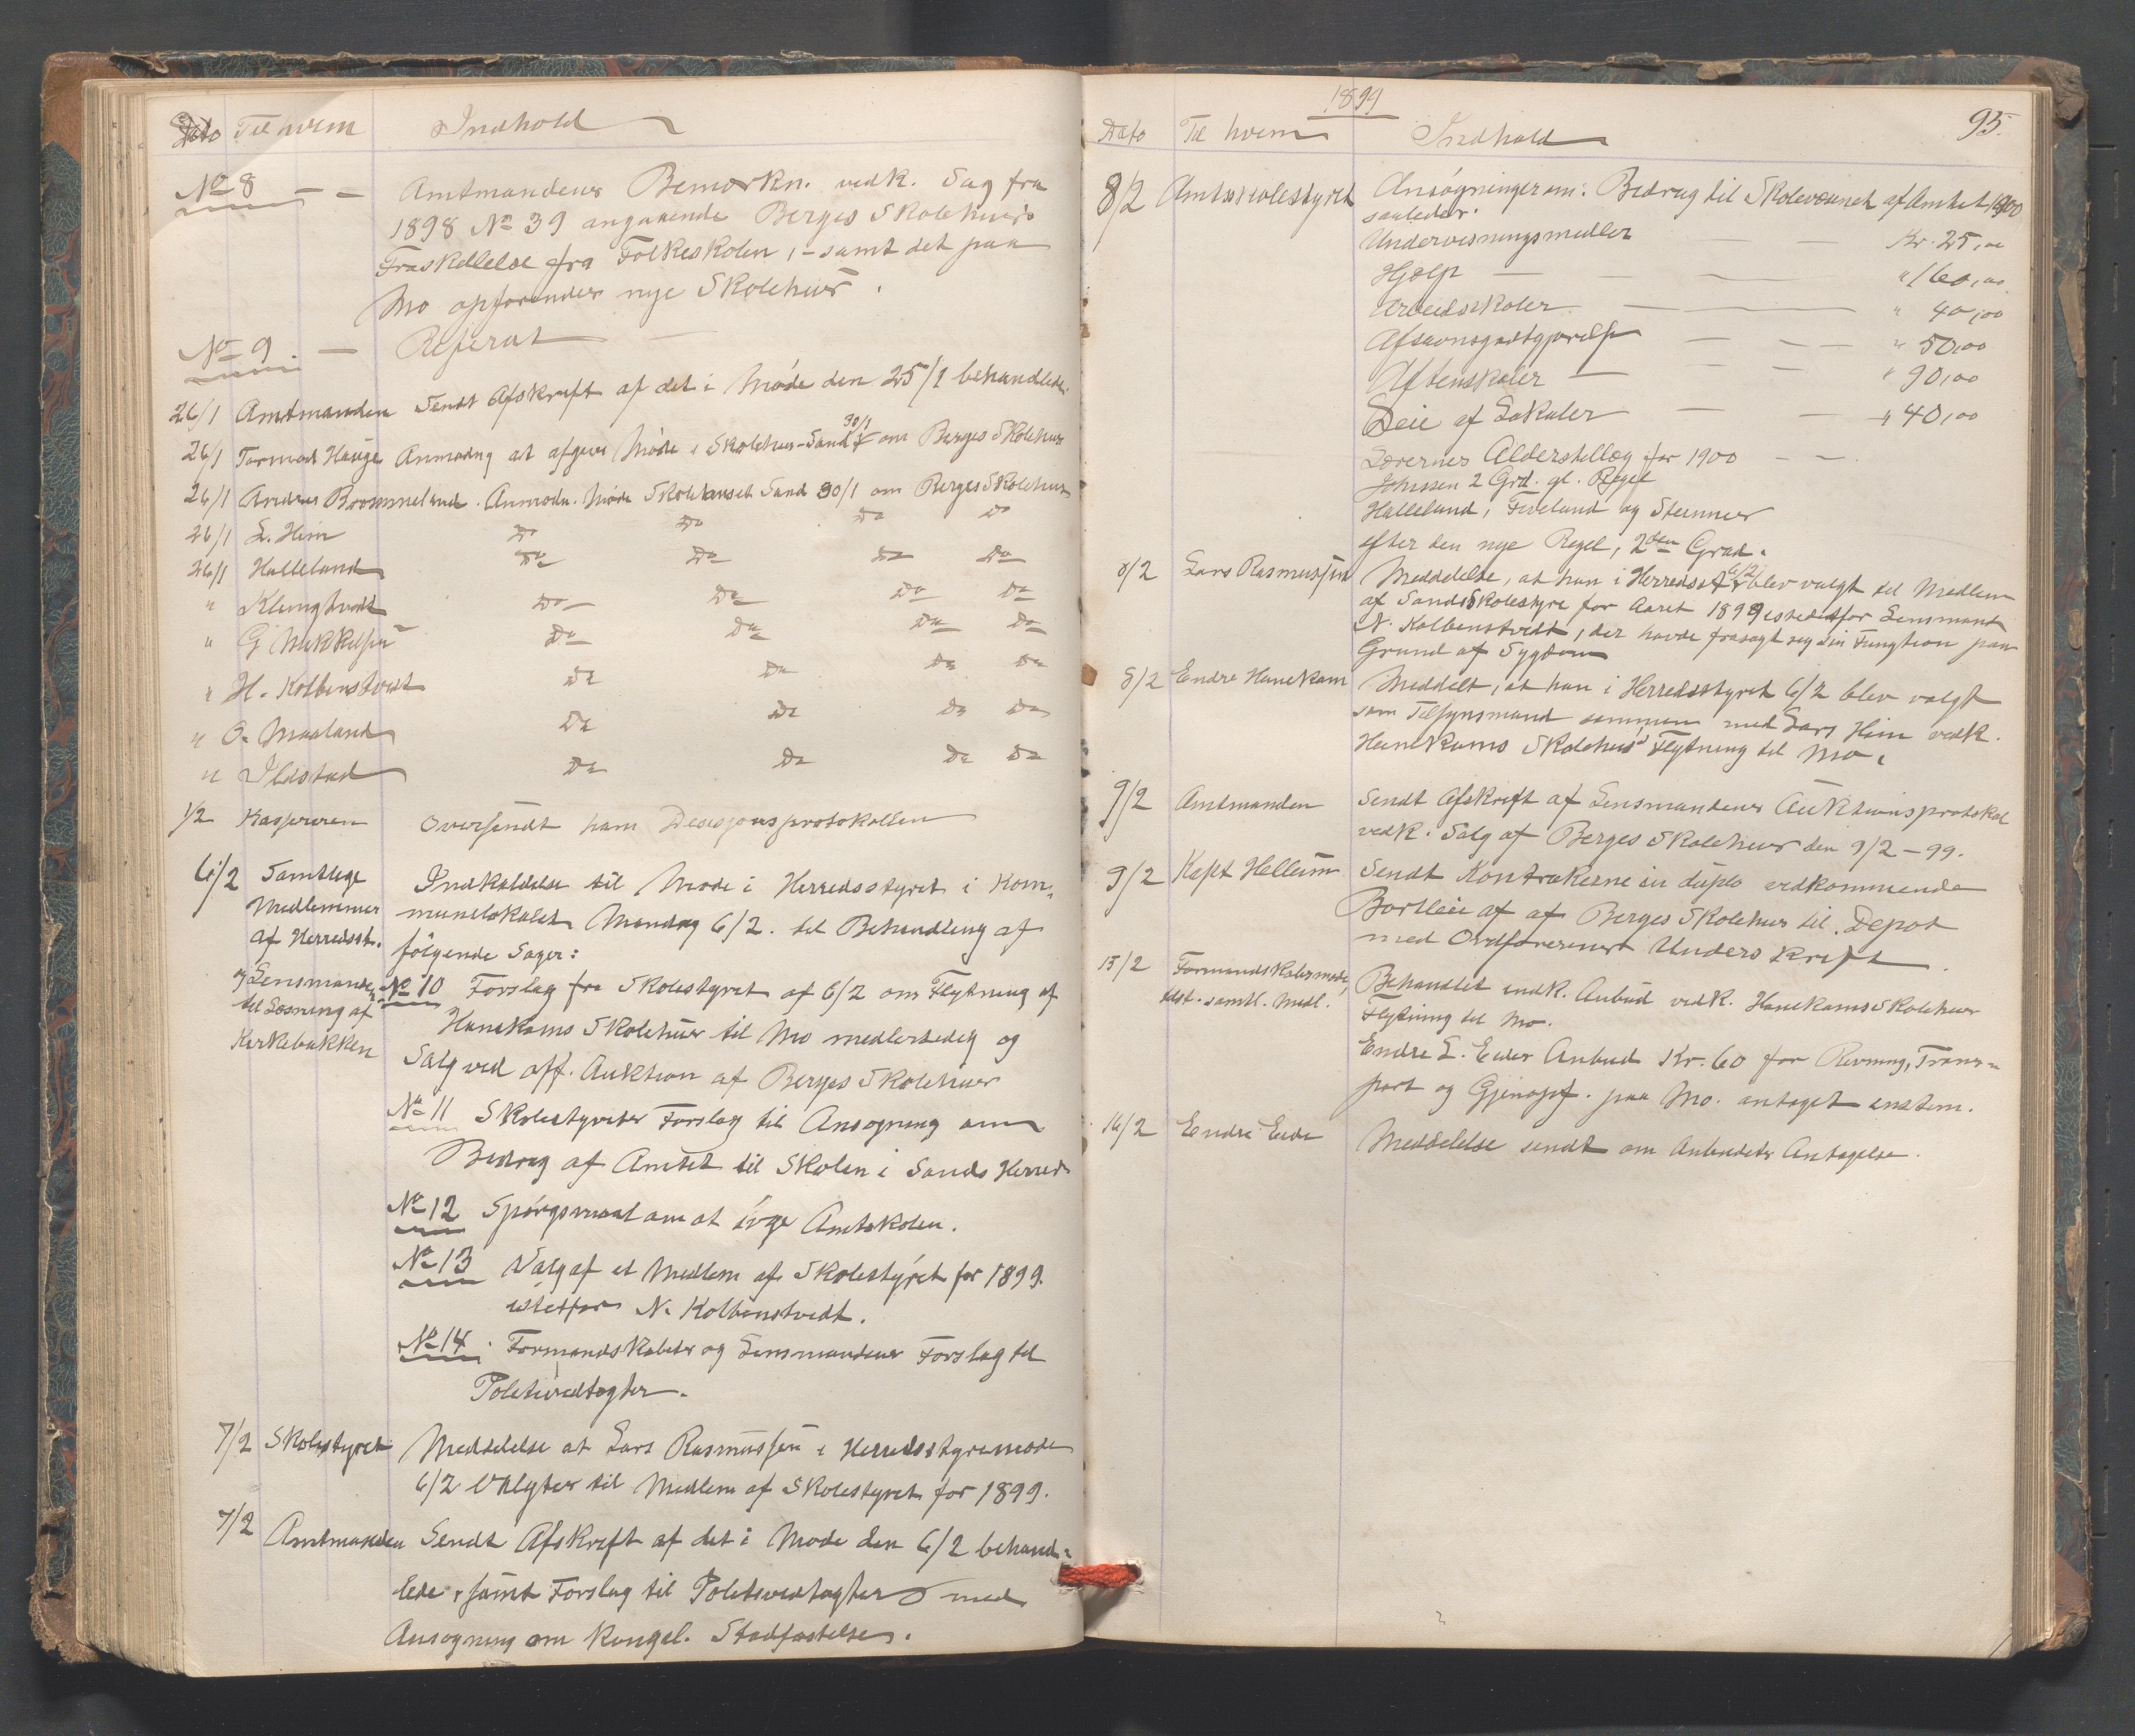 Dato Til hvem Indhold
No 8 — — Amtmandens Bemærkn. vedk. Sag fra
1898 No 39 angaaende Berges Skolehus's
Fraskillelse fra Folkeskolen, - samt det paa
Mo opførendes nye Skolehus.
No 9. — Referat —
26/1 Amtmanden Sendt Afskrift af det i Møde den 25/1 behandlede.
26/1 Tormod Hauge Anmodng at afgive Møde i Skolehus-Sand 30/1 om Berges Skolehus
26/1 Andreas Brommeland. Anmodn. Møde Skolehuset Sand 30/1 om Berges Skolehus
26/1 L. Hiim Do Do Do Do
26/1 Halleland Do Do Do Do
" Klungtvedt Do Do Do Do
" G Mikkelsen Do Do Do Do
" H. Kolbenstvedt Do Do Do Do
" O. Maaland Do Do Do Do
" Ilstad Do Do Do Do
1/2 Kassereren Oversendt ham Decisjonsprotokollen
6/2 Samtlige Indkaldelse til Møde i Herredsstyret i Kom-
Medlemmer munelokalet Mandag 6/2. til Behandling af
af Herredsst. følgende Sager:
og Lensmanden No 10 Forslag fra Skolestyret af 6/2 om Flytning af
til Læsning af Hanekams Skolehus til Mo medlertidig og
Kirkebakken Salg ved off. Auktion af Berges Skolehus
No 11 Skolestyrets Forslag til Ansøgning om
Bidrag af Amtet til Skolen i Sands Herred.
No 12 Spørgsmaal om at søge Amtskolen.
No 13 Valg af et Medlem af Skolestyret for 1899.
istetfor N. Kolbenstvedt.
No 14. Formandskabets og Lensmandens Forslag til
Politivedtægter.
7/2 Skolestyret Meddelelse at Lars Rasmussen i Herredsstyremøde
6/2 valgtes til Medlem af Skolestyret for 1899.
7/2 Amtmanden Sendt Afskrift af det i Møde den 6/2 behand-
lede, samt Forslag til Politivedtægter med
Ansøgning om Kongel. Stadfæstelse.
1899
95.
Dato Til hvem Indhold
8/2 Amtsskolestyret Ansøgninger om: Bidrag til Skolevæsenet af Amtet 1900
saaledes:
Undervisningsmidler — — Kr. 25,00
Hjælp — — — — " 160,00
Arbeidsskoler — — " 40,00
Afsavnsgodtgjørelse — — — " 50,00
Aftenskoler — — — " 90,00
Leie af Lokaler — — " 40,00
Lærernes Alderstillæg for 1900 — —
Johnsen 2 Grd. gl. Regel
Halleland, Fiveland og Steinnes
efter den nye Regel, 2den Grad.
8/2 Lars Rasmussen Meddelelse, at han i Herredsst. 6/2 blev valgt til Medlem
af Sands Skolestyre for Aaret 1899 istedetfor Lensmand
N. Kolbenstvedt, der havde frasagt sig sin Fungtion paa
Grund af Sygdom
8/2 Endre Hanekam Meddelt, at han i Herredsstyret 6/2 blev valgt
som Tilsynsmand sammen med Lars Hiim vedk.
Hanekams Skolehus' Flytning til Mo.
9/2 Amtmanden Sendt Afskrift af Lensmandens Auktionsprotokol
vedk. Salg af Berges Skolehus den 9/2 - 99.
9/2 Kapt Helleim Sendt Kontrakterne in duplo vedkommende
Bortleie af af Berges Skolehus til Depot
med Ordførerens Underskrift.
15/2 Formandskabsmøde, Behandlet indk. Anbud vedk. Hanekams Skolehus
samtl. Medl. Flytning til Mo.
Endre L. Eides Anbud Kr. 60 for Rivning, Trans-
port og Gjenopf. paa Mo. antaget enstem.
16/2 Endre Eide Meddelelse sendt om Anbudets Antagelse.